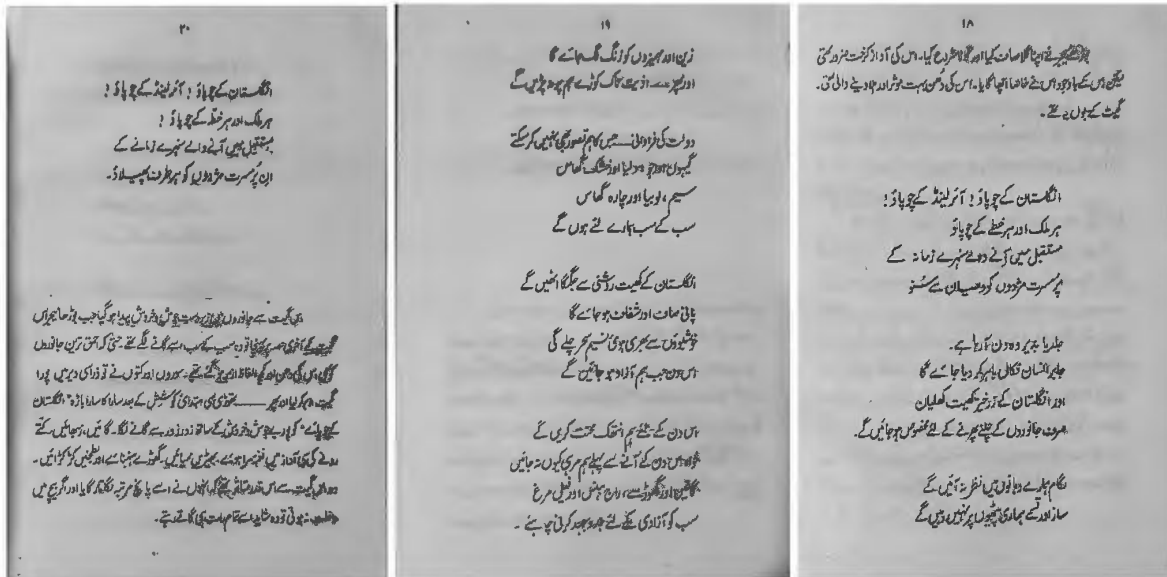 ۱۸
بوڑھے میجر نے اپنا گلا صاف کیا اور گانا شروع کیا۔ اس کی آواز کرخت ضرور تھی
لیکن اس کے باوجود اس نے خاصا اچھا گایا۔ اس کی دُھن بہت موثر اور جذبہ دینے والی تھی۔
گیت کے بول یہ تھے۔
انگلستان کے چوپاؤ! آئرلینڈ کے چوپاؤ!
ہر ملک اور ہر خطے کے چوپاؤ
مستقبل میں آنے والے سنہرے زمانہ کے
پُر مسرت مژدوں کو دھیان سے سُنو
جلد یا بدیر وہ دن آ رہا ہے۔
جابر انسان نکال باہر کر دیا جائے گا
اور انگلستان کے زرخیز کھیت کھلیان
صرف جانوروں کے چلنے پھرنے کے لئے مخصوص ہو جائیں گے۔
لگام ہمارے دہانوں میں نظر نہ آئیں گے
ساز اور تسمے ہماری پیٹھوں پر نہیں رہیں گے
۱۹
زین اور مہمیزوں کو زنگ لگ جائے گا
اور پھر ـــ اذیت ناک کوڑے ہم پر نہ پڑیں گے
دولت کی فراوانی ـــ جس کا ہم تصور بھی نہیں کر سکتے
گیہوں اور جو، دلیا اور خشک گھاس
سیم، لوبیا اور چارہ گھاس
سب کے سب ہمارے لئے ہوں گے
انگلستان کے کھیت روشنی سے جگمگا اٹھیں گے
پانی صاف اور شفاف ہو جائے گا
خوشبوؤں سے بھری ہوئی نسیم سحر چلے گی
اس دن جب ہم آزاد ہو جائیں گے
اس دن کے لئے ہم انتھک محنت کریں گے
خواہ اس دن کے آنے سے پہلے ہم مر ہی کیوں نہ جائیں
گائیں اور گھوڑے، راج ہنس اور فیل مرغ
سب کو آزادی کے لئے جدوجہد کرنی چاہئے۔
۲۰
انگلستان کے چوپاؤ! آئرلینڈ کے چوپاؤ!
ہر ملک اور ہر خطے کے چوپاؤ!
مستقبل میں آنے والے سنہرے زمانے کے
ان پُر مسرت مژدوں کو ہر طرف پھیلا دو۔
اس گیت سے جانوروں میں زبردست جوش و خروش پیدا ہو گیا جب بوڑھا میجر اس
گیت کے آخری حصہ پر پہنچا تو وہ سب کے سب اسے گانے لگے تھے حتیٰ کہ احمق ترین جانوروں
کو بھی اس کی دھن اور کچھ الفاظ یاد ہو گئے تھے۔ سوروں اور کتوں نے تو ذرا سی دیر میں پورا
گیت یاد کر لیا اور پھر ـــ تھوڑی سی ابتدائی کوشش کے بعد سارا کا سارا باڑہ "انگلستان
کے چوپائے" کو پورے جوش و خروش کے ساتھ زور زور سے گانے لگا۔ گائیں رمبھائیں، کتے
رونے کی سی آواز میں نغمہ سرا ہوئے، بھیڑیں ممیائیں۔ گھوڑے ہنہنائے اور بطخیں کڑکڑائیں۔
وہ اس گیت سے اس قدر متاثر ہوئے کہ انہوں نے اسے پانچ مرتبہ لگاتار گایا اور اگر بیچ میں
مداخلت نہ ہوتی تو وہ شاید اسے تمام رات ہی گاتے رہتے۔